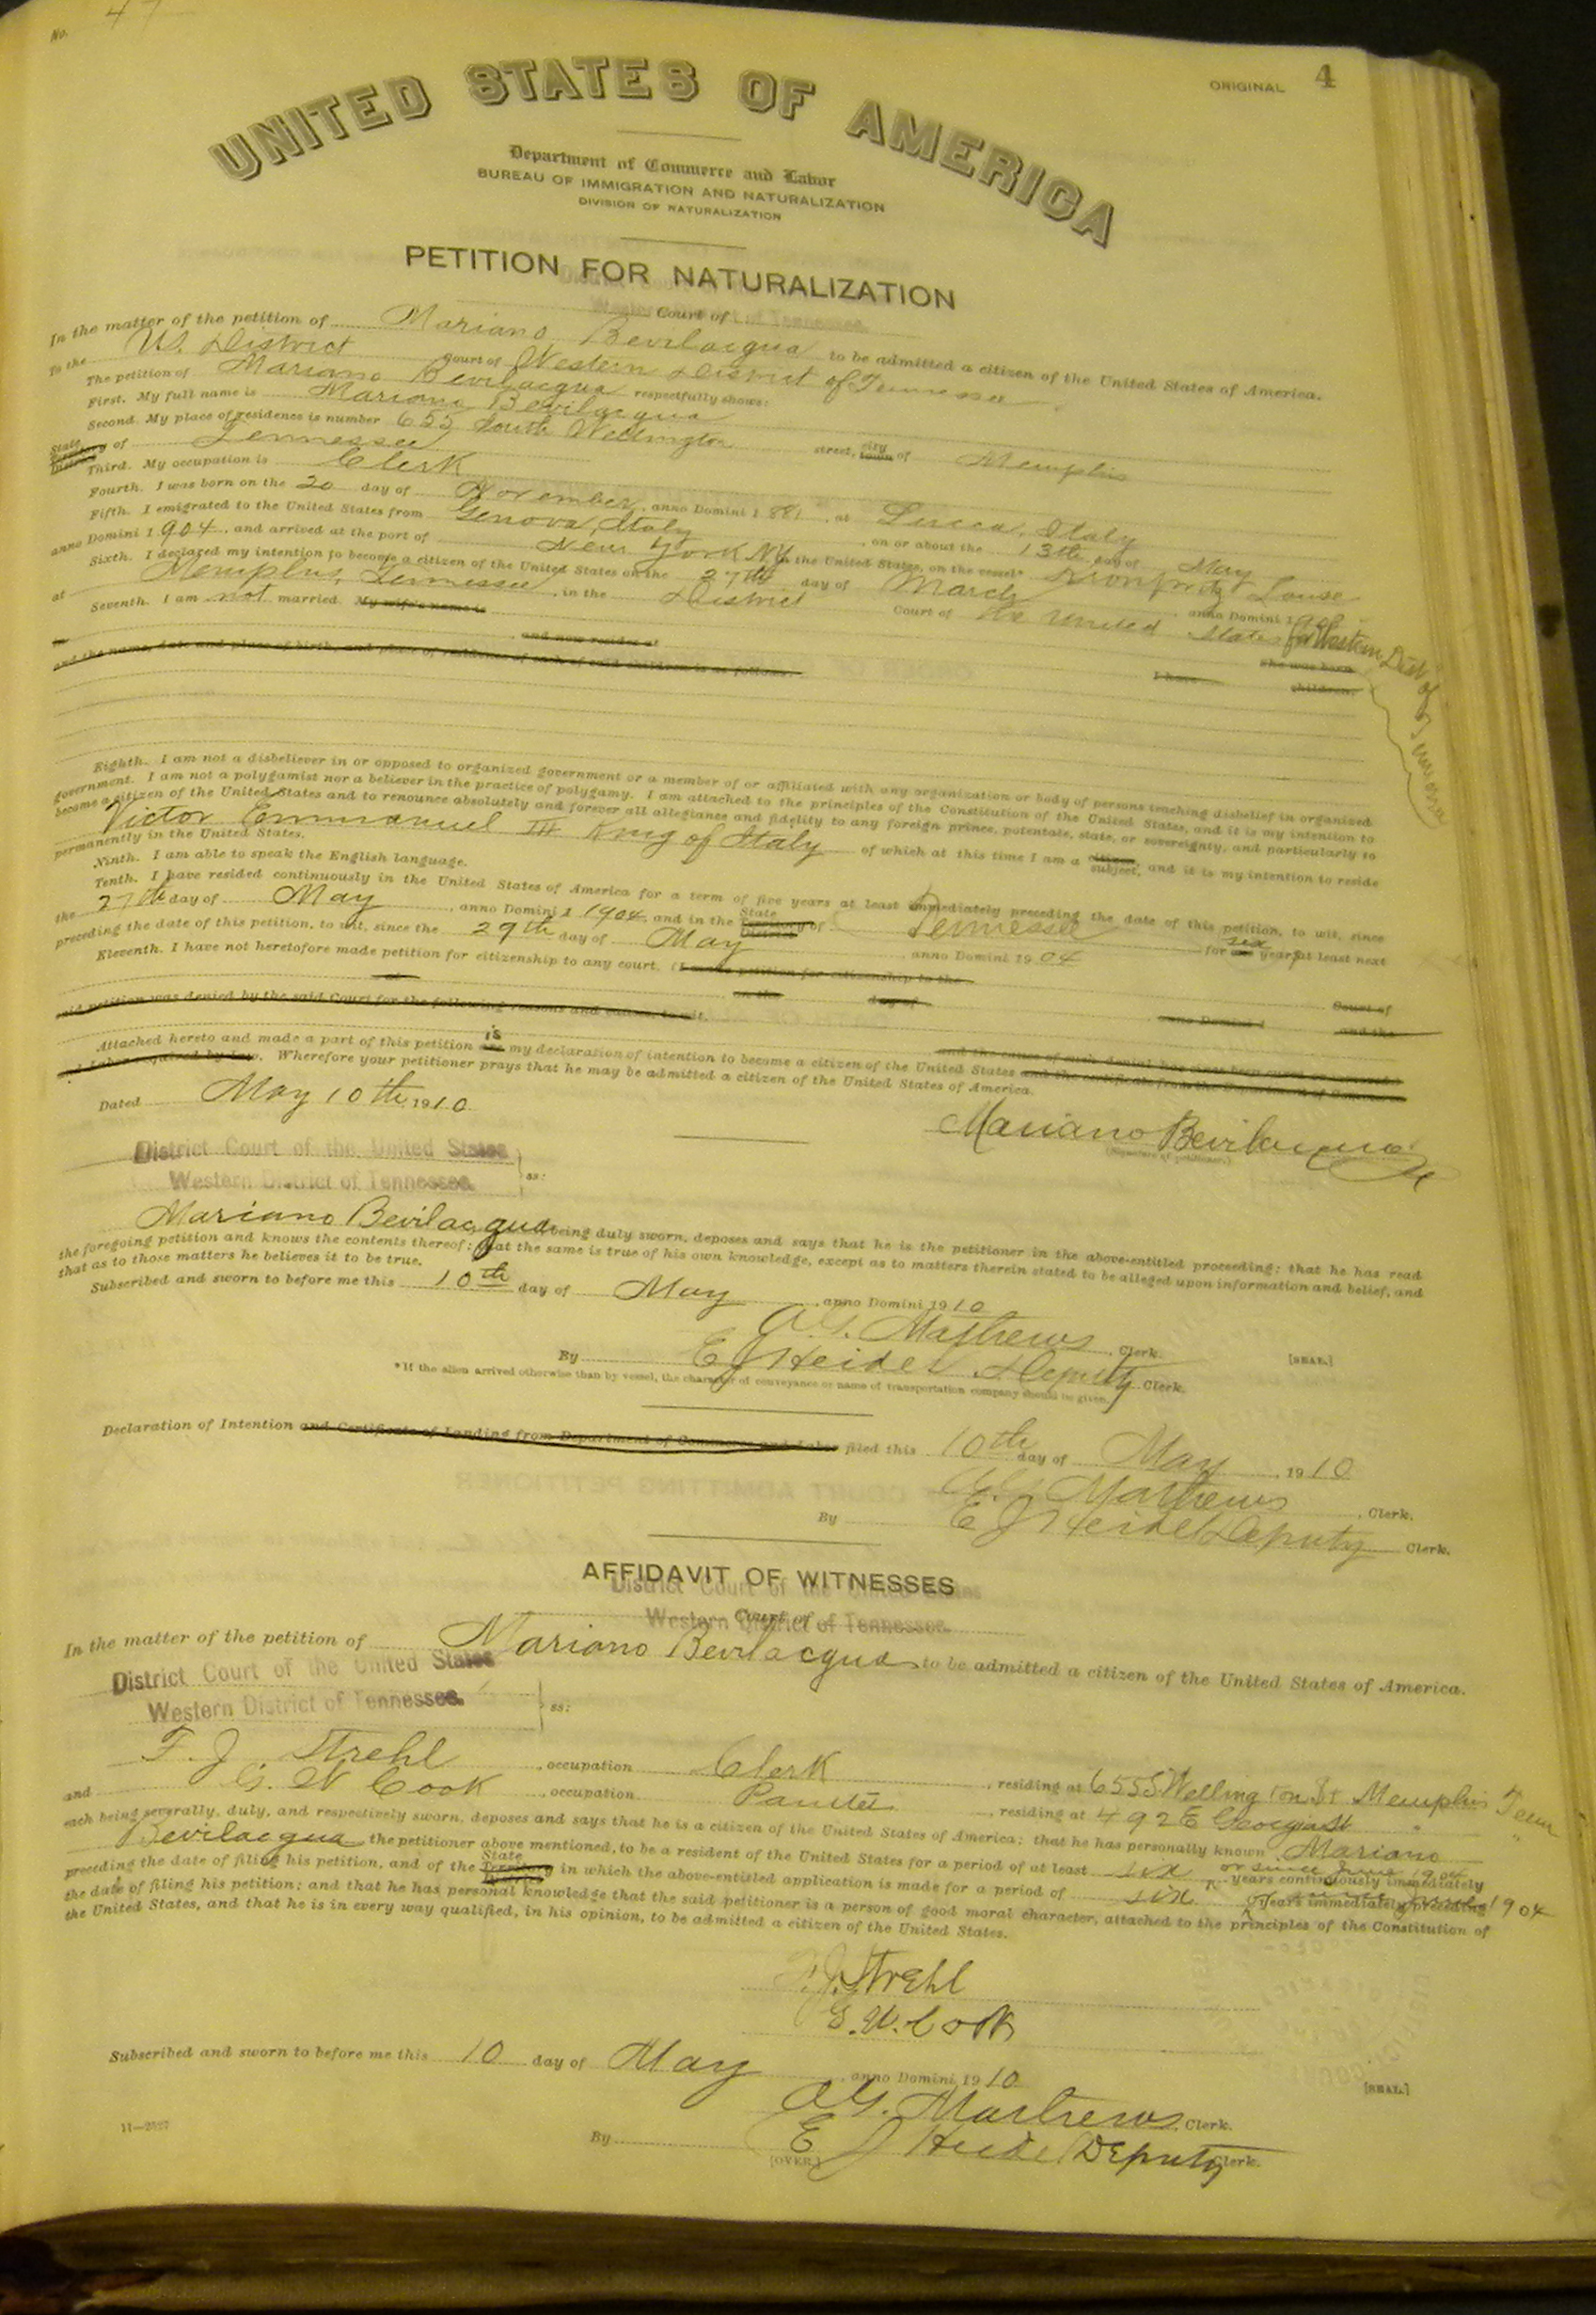 No. 47
ORIGINAL 4
UNITED STATES OF AMERICA
Department of Commerce and Labor
BUREAU OF IMMIGRATION AND NATURALIZATION
DIVISION OF NATURALIZATION
PETITION FOR NATURALIZATION
Court of
In the matter of the petition of Mariano Bevilacqua to be admitted a citizen of the United States of America.
To the U.S. District Court of Western District of Tennessee
The petition of Mariano Bevilacqua respectfully shows:
First. My full name is Mariano Bevilacqua
Second. My place of residence is number 655 South Wellington street, city town of Memphis
State Territory District of Tennessee
Third. My occupation is Clerk
Fourth. I was born on the 20 day of November, anno Domini 1881, at Lucca, Italy
Fifth. I emigrated to the United States from Genova, Italy, on or about the 13th day of May
anno Domini 1904, and arrived at the port of New York NY in the United States, on the vessel* Louise
Sixth. I declared my intention to become a citizen of the United States on the 27th day of March anno Domini 1908
at Memphis, Tennessee, in the District Court of the United States for Western Dist of Tennessee
Seventh. I am not married. My wife's name is
she was born
in and now resides at
I have children,
and the name, date and place of birth, and place of residence of each of said children is as follows:
Eighth. I am not a disbeliever in or opposed to organized government or a member of or affiliated with any organization or body of persons teaching disbelief in organized
government. I am not a polygamist nor a believer in the practice of polygamy. I am attached to the principles of the Constitution of the United States, and it is my intention to
become a citizen of the United States and to renounce absolutely and forever all allegiance and fidelity to any foreign prince, potentate, state, or sovereignty, and particularly to
Victor Emmanuel III King of Italy of which at this time I am a citizen subject, and it is my intention to reside
permanently in the United States.
Ninth. I am able to speak the English language.
Tenth. I have resided continuously in the United States of America for a term of five years at least immediately preceding the date of this petition, to wit, since
the 27th day of May, anno Domini 1 1904, and in the State Territory District of Tennessee for six years at least next
preceding the date of this petition, to wit, since the 29th day of May, anno Domini 1904
Eleventh. I have not heretofore made petition for citizenship to any court. (I made petition for citizenship to the Court of
at on the day of anno Domini 1 and the
said petition was denied by the said Court for the following reasons and causes, to wit,
and the cause of such denial has since been cured or removed.)
Attached hereto and made a part of this petition are is my declaration of intention to become a citizen of the United States and the certificate from the Department of Commerce
and Labor required by law. Wherefore your petitioner prays that he may be admitted a citizen of the United States of America.
Dated May 10th, 1910
Mariano Bevilacqua
(Signature of petitioner.)
District Court of the United States
Western District of Tennessee. ss:
Mariano Bevilacqua, being duly sworn, deposes and says that he is the petitioner in the above-entitled proceeding; that he has read
the foregoing petition and knows the contents thereof; that the same is true of his own knowledge, except as to matters therein stated to be alleged upon information and belief, and
that as to those matters he believes it to be true.
Subscribed and sworn to before me this 10th day of May, anno Domini 1910
A. G. Matthews, Clerk.
By E J Heidel Deputy Clerk.
[SEAL.]
*If the alien arrived otherwise than by vessel, the character of conveyance or name of transportation company should be given.
Declaration of Intention and Certificate of Landing from Department of Commerce and Labor filed this 10th day of May, 1910
A. G. Matthews, Clerk.
By E J Heidel Deputy Clerk.
AFFIDAVIT OF WITNESSES
District Court of the United States
Court of
Western District of Tennessee.
In the matter of the petition of Mariano Bevilacqua to be admitted a citizen of the United States of America.
District Court of the United States
Western District of Tennessee. ss:
F. J. Strehl, occupation Clerk, residing at 655 S. Wellington St Memphis Tenn
and G. W Cook, occupation Painter, residing at 492 E Georgia St " "
each being severally, duly, and respectively sworn, deposes and says that he is a citizen of the United States of America; that he has personally known Mariano
Bevilacqua, the petitioner above mentioned, to be a resident of the United States for a period of at least six years continuously immediately or since June 1904
preceding the date of filing his petition, and of the State Territory District in which the above-entitled application is made for a period of six years immediately preceding or since June 1904
the date of filing his petition; and that he has personal knowledge that the said petitioner is a person of good moral character, attached to the principles of the Constitution of
the United States, and that he is in every way qualified, in his opinion, to be admitted a citizen of the United States.
F. J. Strehl
G. W. Cook
Subscribed and sworn to before me this 10 day of May, anno Domini, 1910
[SEAL.]
A. G. Matthews, Clerk.
By E J Heidel Deputy Clerk.
11—2527
[OVER.]